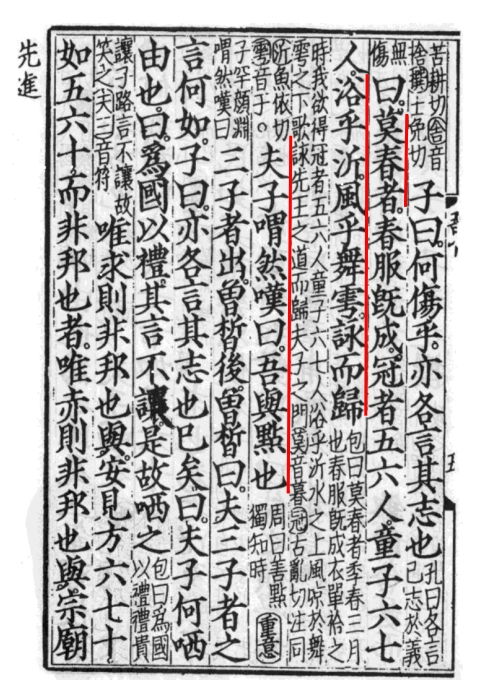 苦耕切舍音
捨撰士免切
子曰何傷乎亦各言其志也
孔曰各言
己志於義
無
傷
曰莫春者。春服既成。冠者五六人。童子六七
人。浴乎沂。風乎舞雩。詠而歸
包曰莫春者季春三月
也春服既成衣單袷之
時我欲得冠者五六人童子六七人浴乎沂水之上風凉於舞
雩之下歌詠先王之道而歸夫子之門莫音暮冠古亂切注同
沂魚依切
雩音于。
夫子喟然嘆曰。吾與點也
周曰善點
獨知時
重意
子罕顏淵
喟然嘆曰
三子者出。曾皙後。曾皙曰。夫三子者之
言何如。子曰。亦各言其志也已矣。曰。夫子何哂
由也。曰。爲國以禮。其言不讓。是故哂之
包曰爲國
以禮禮貴
讓子路言不讓故
笑之夫三音符
唯求則非邦也與。安見方六七十
如五六十。而非邦也者。唯赤則非邦也與。宗廟
先進